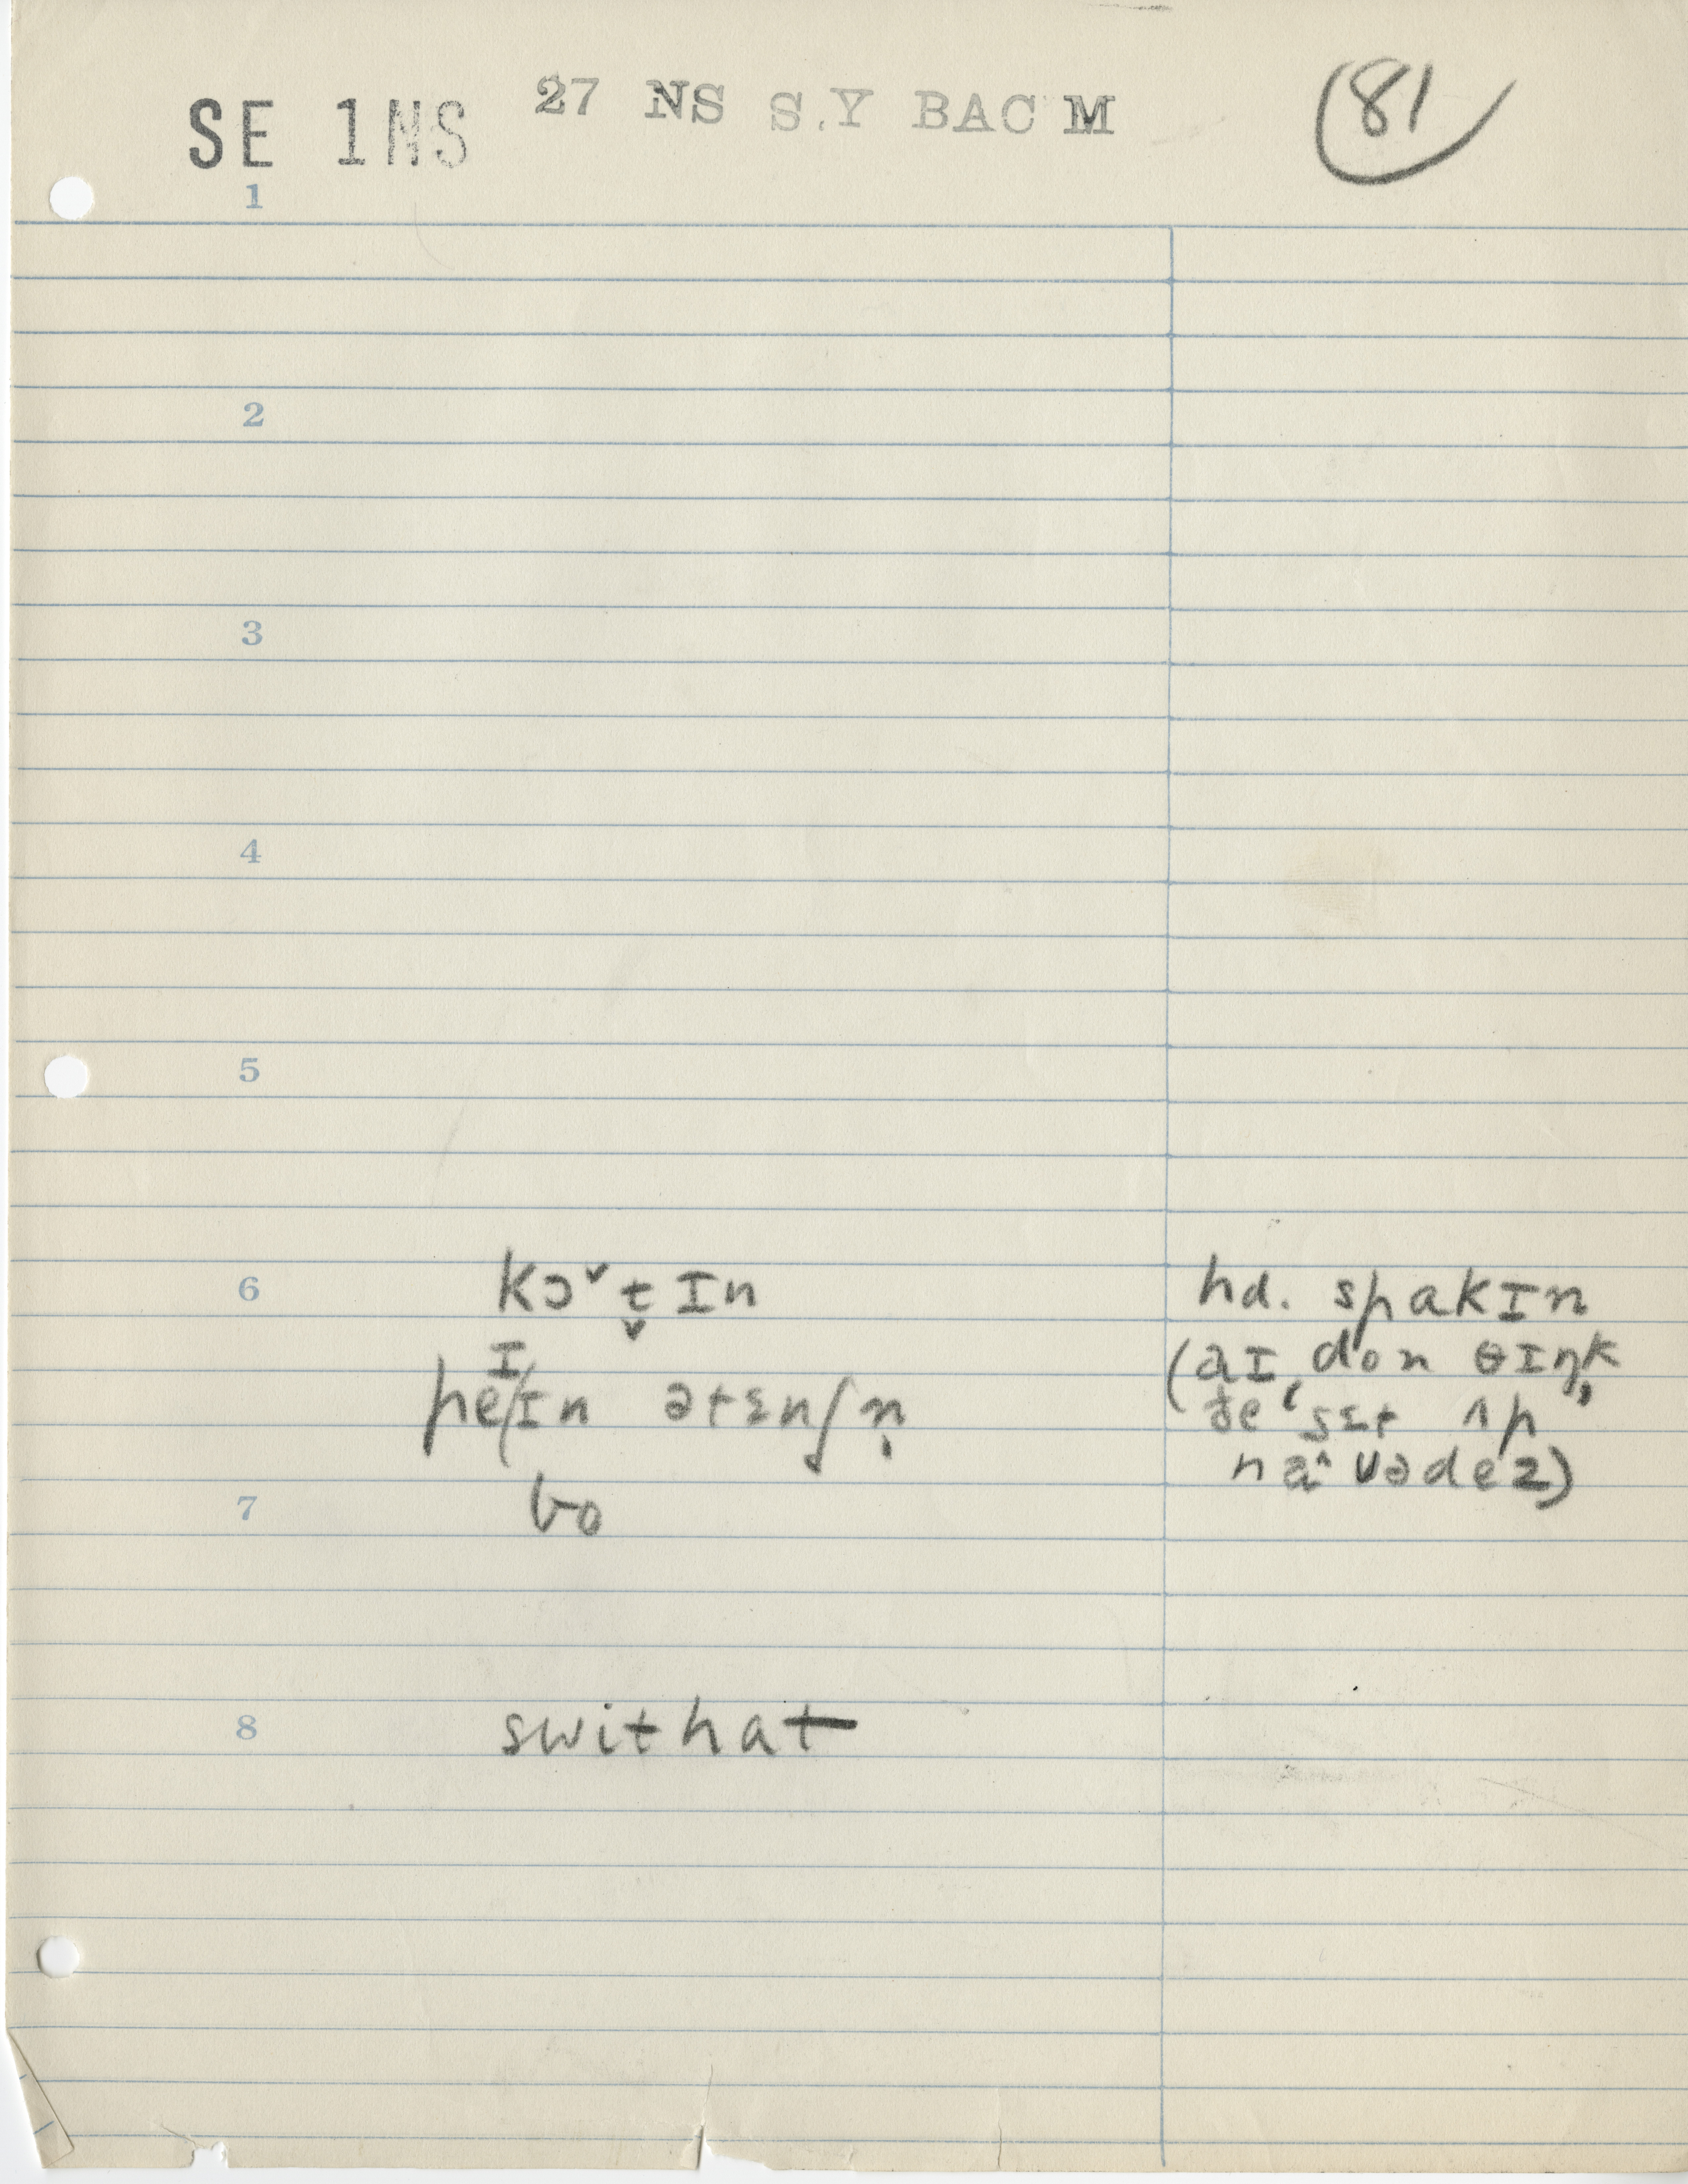 SE 1NS 27 NS S.Y BAC M 81
1
2
3
4
5
6 kɔˇt̬ɪn hd. spakɪn
peɪ/ɪn ətɛnʃn̩ (aɪ don θɪŋk
ðe 'sɛt ʌp
naˆʊədez)
7 bo
8 swithat